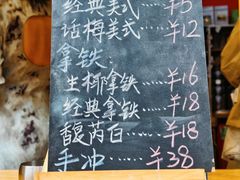 经典美式……¥5
话梅美式……¥12
拿铁
生椰拿铁……¥16
经典拿铁……¥18
馥芮白……¥18
手冲……¥38